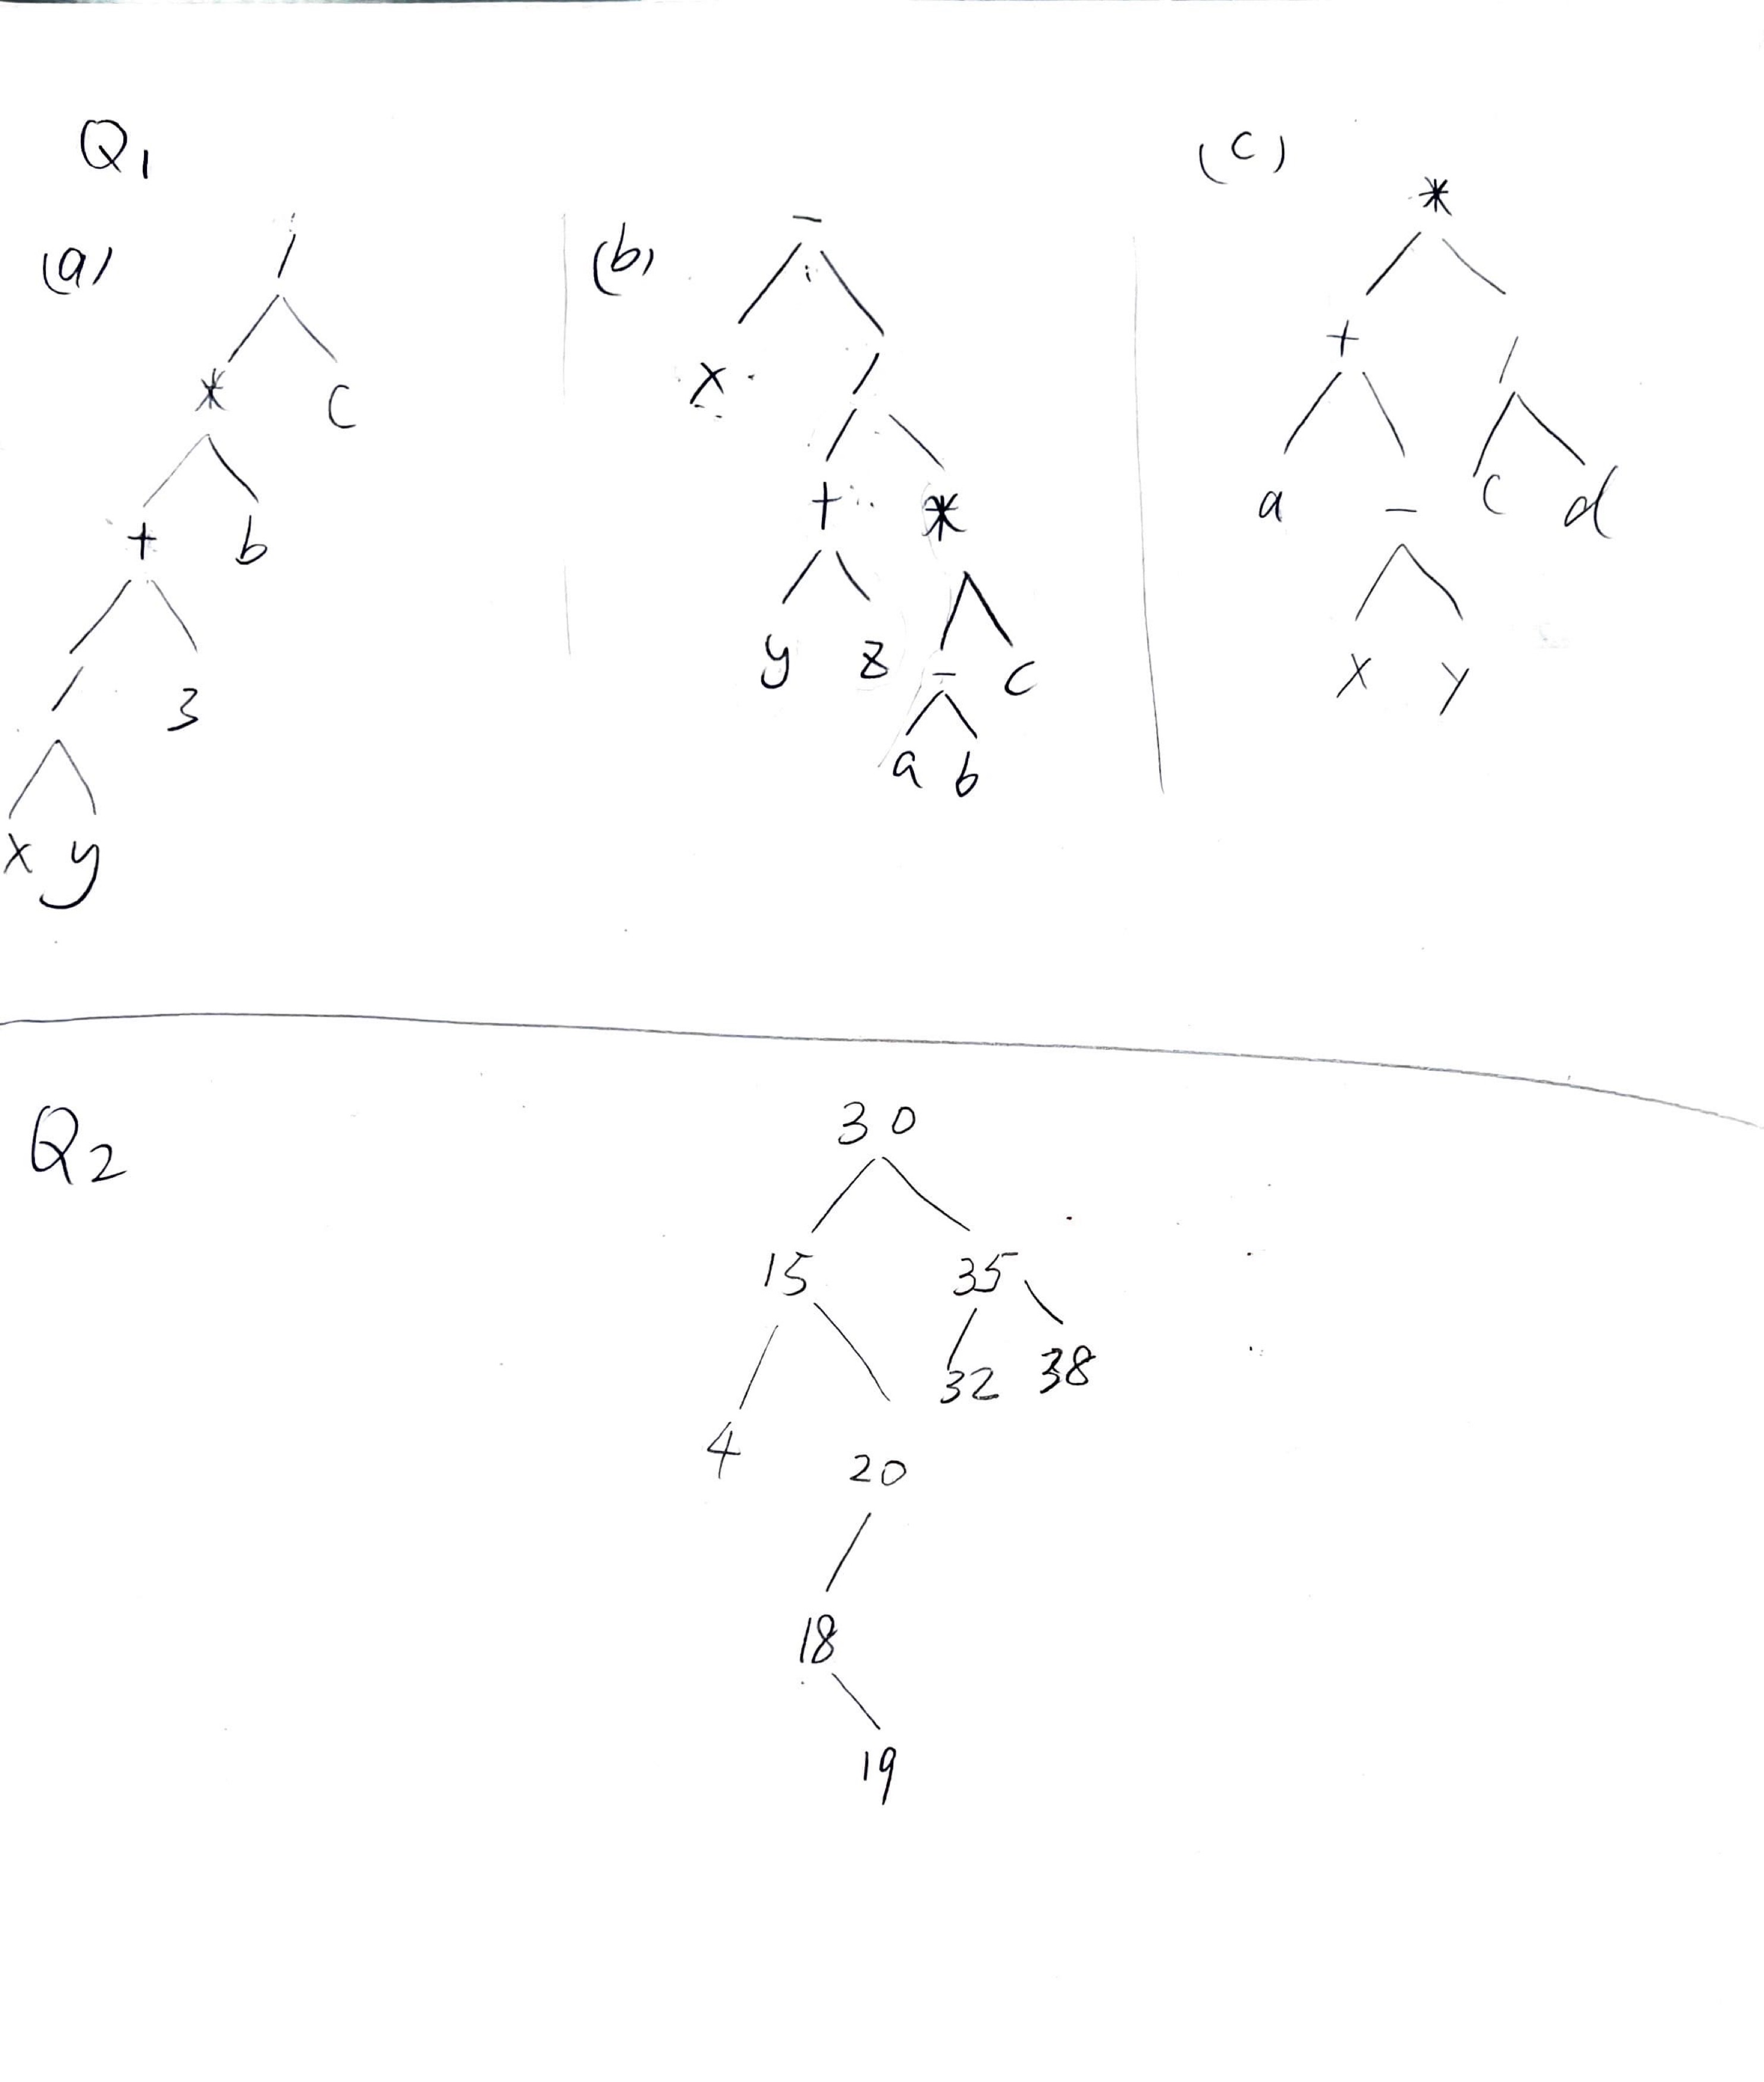 Q1
(a)
/
* C
+ b
/ 3
x y
(b)
-
x /
+ *
y z - c
a b
(c)
*
+ /
a - c d
x y
Q2
30
15 35
32 38
4 20
18
19